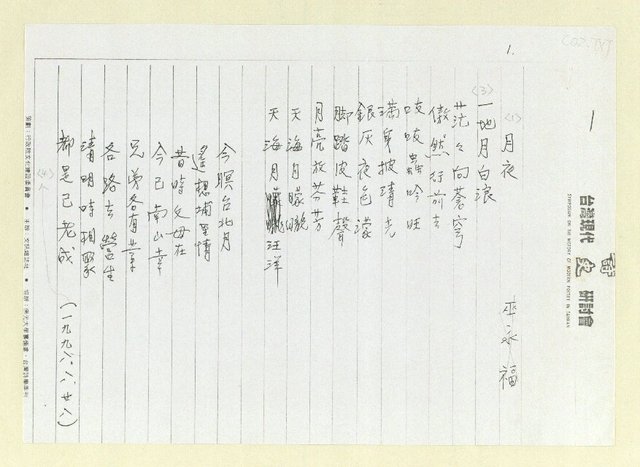 CO2.TXT
1.
台灣現代詩史研討會
SYMPOSIUM ON THE HISTORY OF MODERN POETRY IN TAIWAN
一
巫永福
〈1〉月夜
〈3〉
一地月白浪
茫々向蒼穹
傲然行前去
吱吱蟲吟旺
滿身披清光
銀灰夜色濛
脚踏皮鞋聲
月亮放芬芳
天海月朦朧
天海月汪洋
今瞑台北月
遙想埔里情
昔時父母在
今已南山幸
兄弟各有業
各路去營生
清明時相聚
都是已老成
〈4〉
(一九九六.八.廿八)